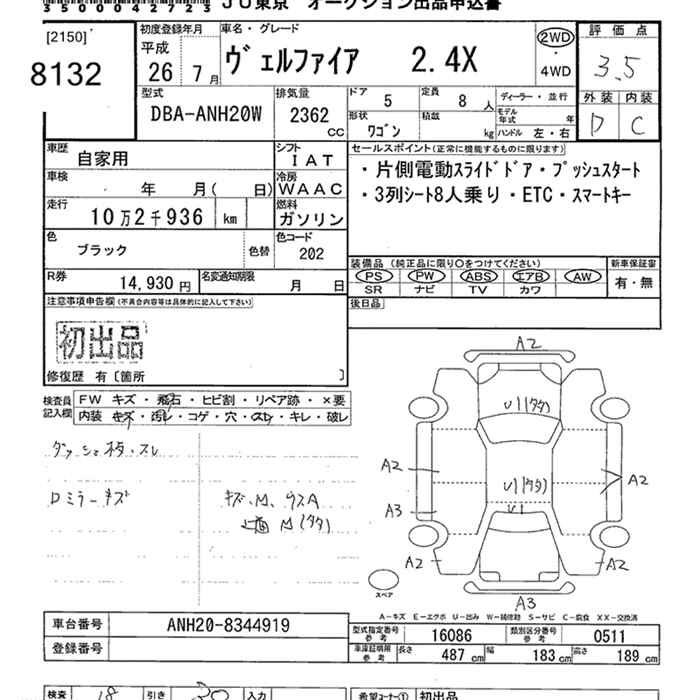 35000042723 JU東京 オークション出品申込書
[2150]
8132
初度登録年月
平成 26年 7月
車名・グレード
ヴェルファイア 2.4X
2WD
・
4WD
評価点
3.5
外装 内装
D C
型式
DBA-ANH20W
排気量
2362 cc
ドア 5
定員 8人
形状 ワゴン
積載 kg
ディーラー・並行
モデル年式 年
ハンドル 左・右
車歴
自家用
シフト
IAT
車検
年 月( 日)
冷房
WAAC
走行
10万2千936 km
燃料
ガソリン
色
ブラック
色替
色コード
202
R券 14,930円
名変通知期限 月 日
セールスポイント(正常に機能するものに限ります)
・片側電動スライドドア・プッシュスタート
・3列シート8人乗り・ETC・スマートキー
装備品 (純正品に限り○をつけてください)
PS PW ABS エアB AW
SR ナビ TV カワ
新車保証書
有・無
後日品
注意事項申告欄(不具合内容等は具体的に記入して下さい)
初出品
修復歴 有〔箇所 〕
検査員記入欄
FW キズ・飛石・ヒビ割・リペア跡・×要
内装 キズ・汚レ・コゲ・穴・スレ・キレ・破レ
Dミラーキズ
A2
U1(タタ)
A2
U1(タタ)
A2
A3
U1
A2
A2
A3
スペア
A-キズ E-エクボ U-凹み W-補修跡 S-サビ C-腐食 XX-交換済
車台番号 ANH20-8344919
登録番号
型式指定番号参考 16086
類別区分番号参考 0511
車庫証明用参考 長さ 487cm 幅 183cm 高さ 189cm
検査 18 引き 20 入力
希望コーナー① 初出品